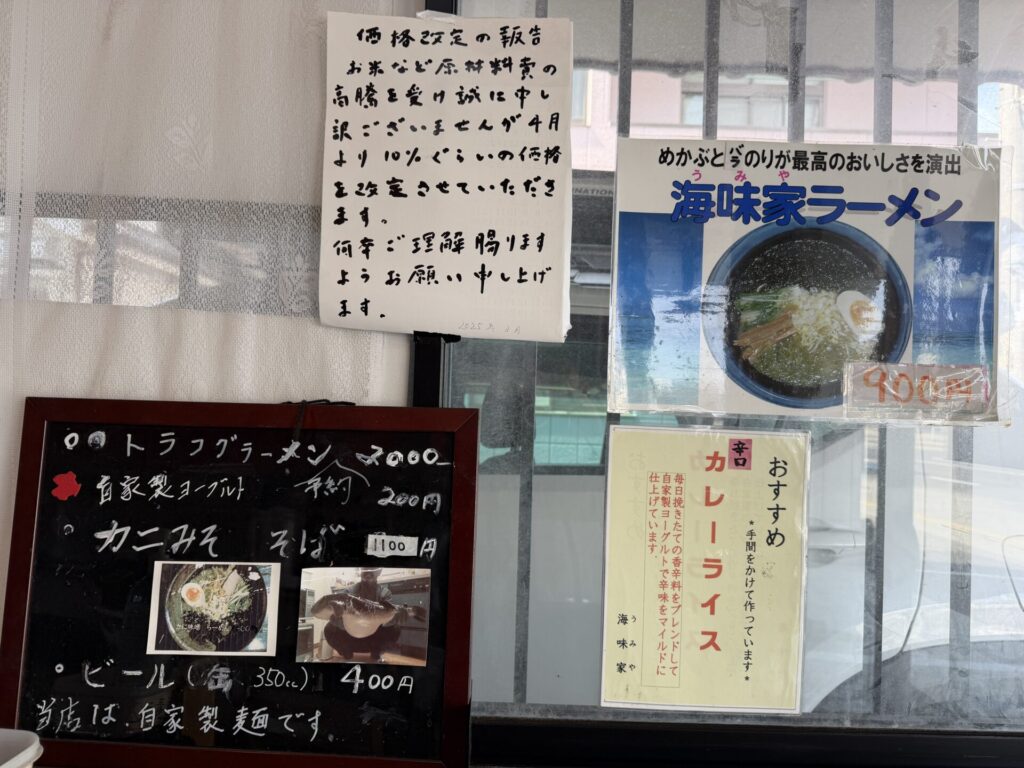 価格改定の報告
お米など原材料費の
高騰を受け誠に申し
訳ございませんが4月
より10%ぐらいの価格
を改定させていただき
ます。
何幸ご理解賜ります
ようお願い申し上げ
ます。
めかぶとバラのりが最高のおいしさを演出
うみや
海味家ラーメン
900円
トラフグラーメン 2000
予約
自家製ヨーグルト 200円
カニみそ そば 1100円
ビール(缶 350cc) 400円
当店は、自家製麺です。
おすすめ
*手間をかけて作っています*
辛口
カレーライス
毎日挽きたての香辛料をブレンドして
自家製ヨーグルトで辛味をマイルドに
仕上げています。
うみや
海味家